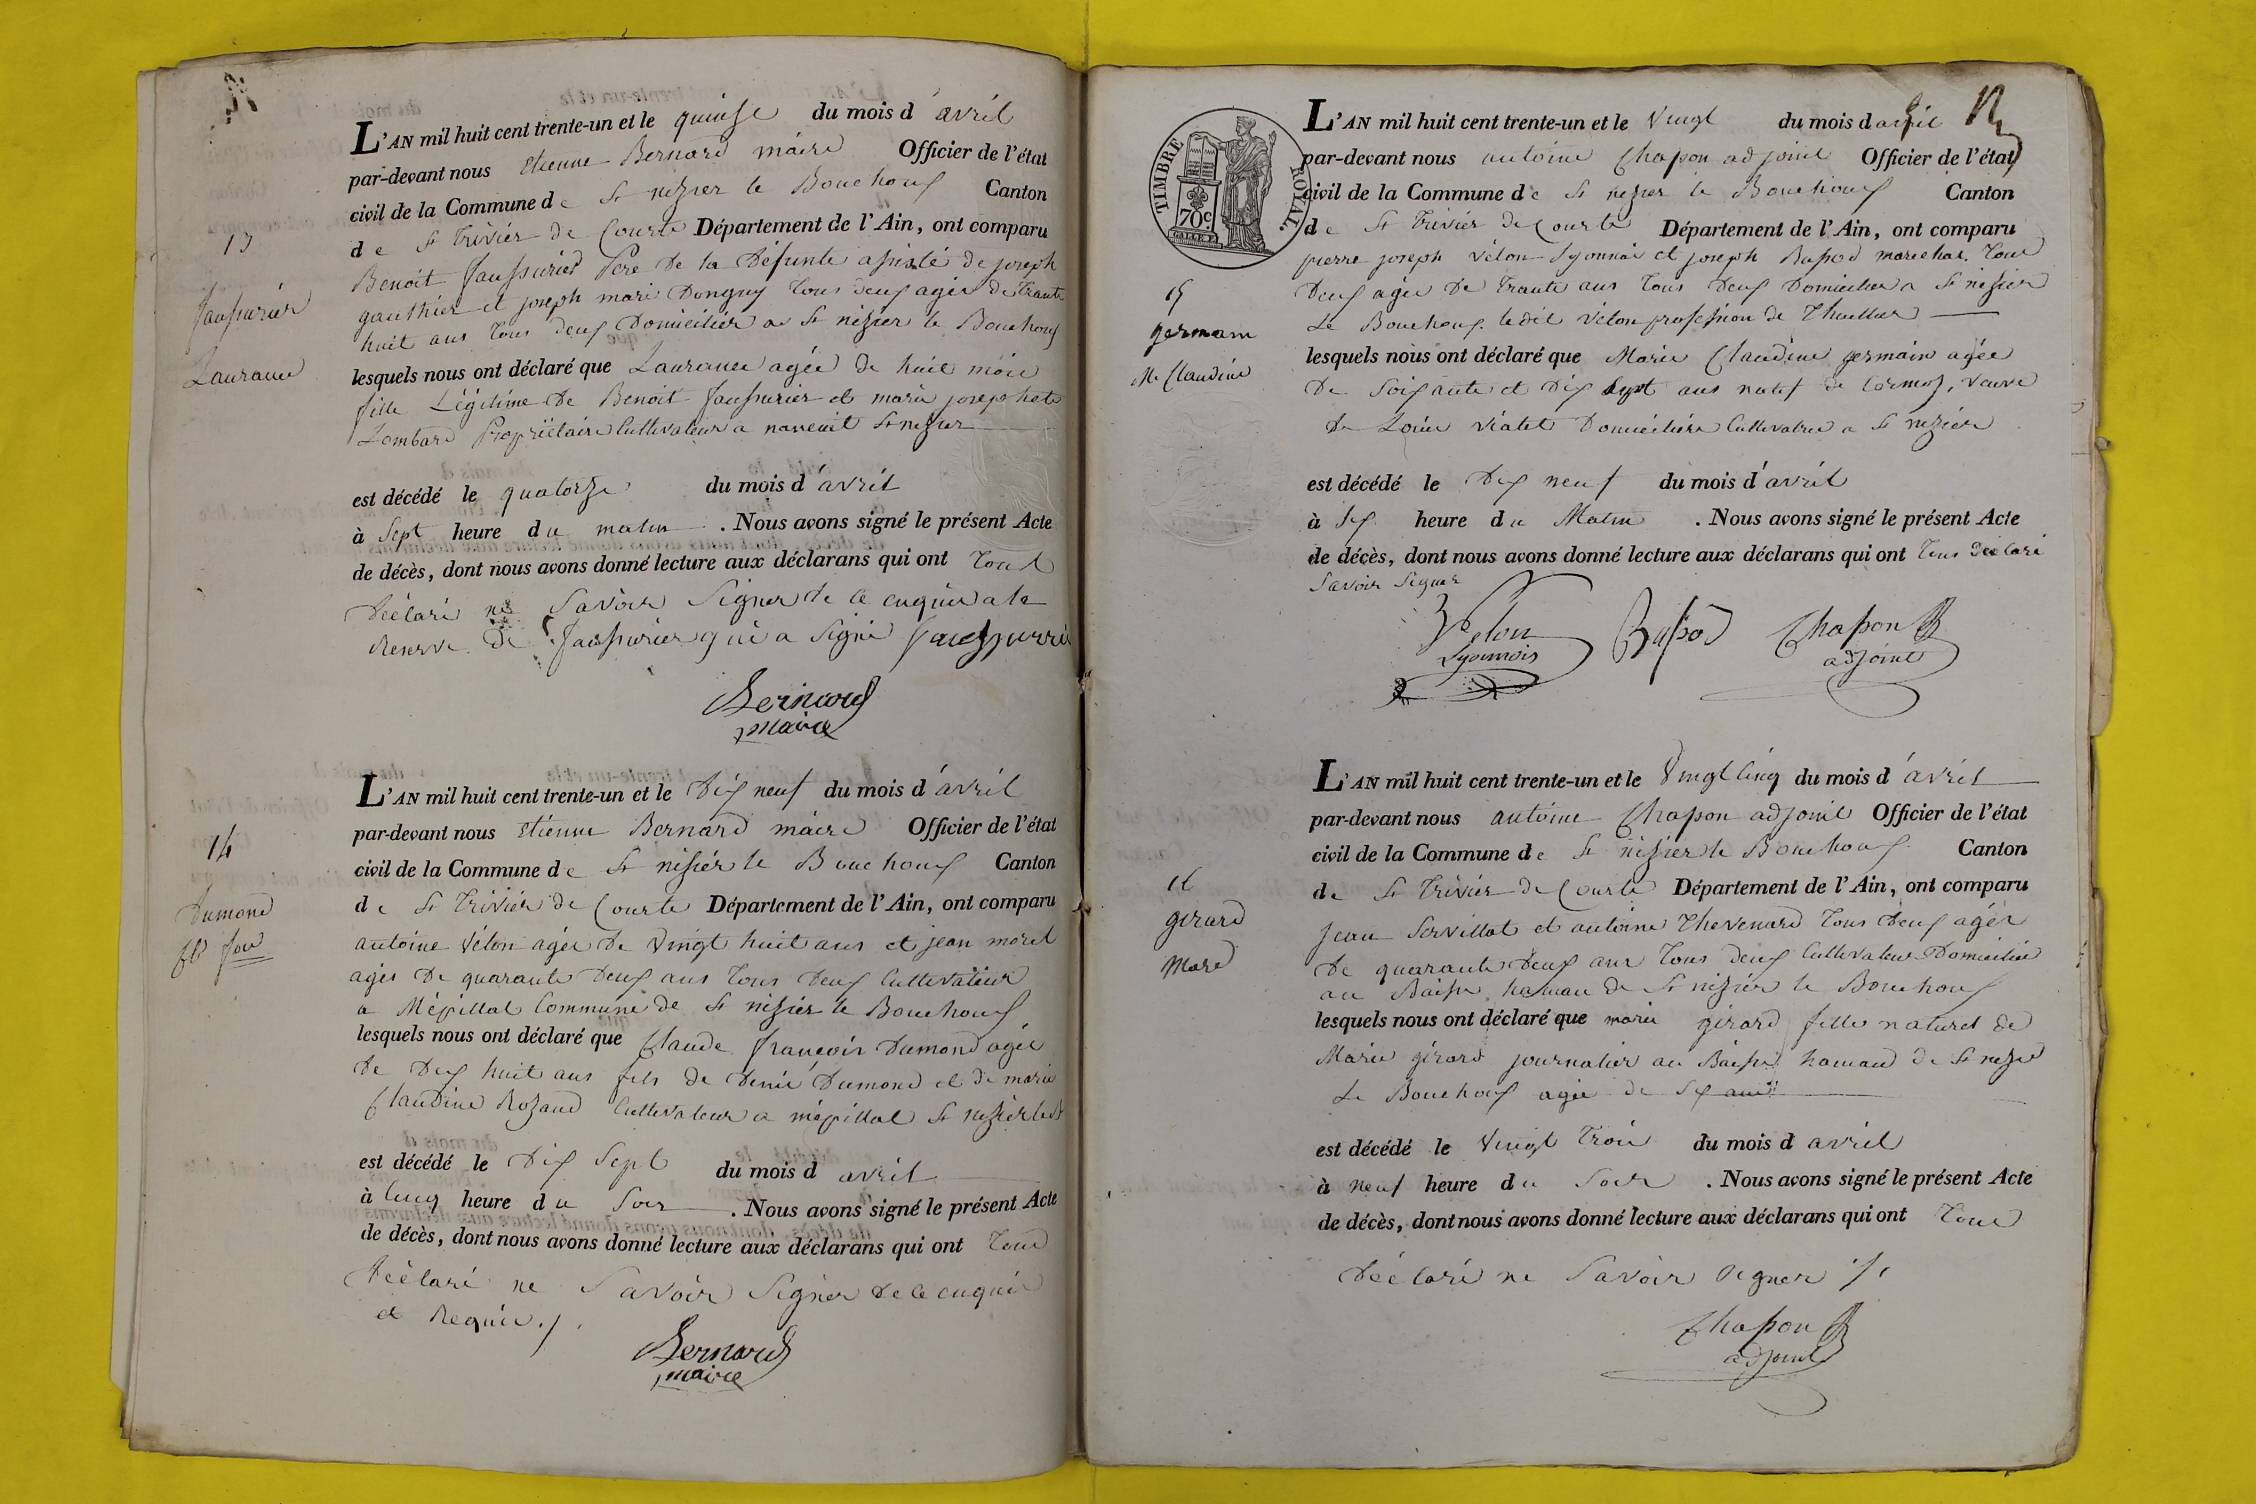 L'AN mil huit cent trente-un et le quinse du mois d'avril
par-devant nous etienne Bernard maire Officier de l'état
civil de la Commune de St nizier le Bouchoux Canton
de St Trivier de Courte Département de l'Ain, ont comparu
Benoit Faussurier Pere De la Défunte assisté de joseph
gauthier et joseph marie Donguy tous deux agés de trante
huit ans tous deux Domicilier a St nizier le Bouchoux
lesquels nous ont déclaré que Laurance agée de huit mois
fille Légitime De Benoit Faussurier et marie josephete
Lombard Propriétaire Cultivateur a St nizier
est décédé le quatorze du mois d'avril
à Sept heure du matin . Nous avons signé le présent Acte
de décès, dont nous avons donné lecture aux déclarans qui ont tous
déclaré ne Savoir Signer de ce enquis a la
Reserve de Faussurier qui a Signé
Bernard
maire
13
Faussurier
Laurance
L'AN mil huit cent trente-un et le Dix neuf du mois d'avril
par-devant nous etienne Bernard maire Officier de l'état
civil de la Commune de St nisier le Bouchoux Canton
de St Trivier de Courte Département de l'Ain, ont comparu
antoine Véton agée de vingt huit ans et jean morel
agés De quarante Deux ans tous deux Cultivateur
a Mépillat Commune de St nisier le Bouchoux
lesquels nous ont déclaré que Claude françois Dumond agée
De Dix huit ans fils de Denis Dumond et de marie
Claudine Rozand Cultivateur a mépillat St nizier le B
est décédé le Dix Sept du mois d avril
à Cinq heure du Soir . Nous avons signé le présent Acte
de décès, dont nous avons donné lecture aux déclarans qui ont tous
déclaré ne Savoir Signer de ce enquis
et Requis ./.
Bernard
maire
14
Dumond
Cde fois
12
TIMBRE ROYAL
70c
L'AN mil huit cent trente-un et le Vingt du mois d avril
par-devant nous antoine Chapon adjoint Officier de l'état
civil de la Commune de St nizier le Bouchoux Canton
de St Trivier de Courte Département de l'Ain, ont comparu
pierre joseph Véton Lyonnois et joseph Marechal tous
Deux agés De trante ans tous Deux Domicilier a St nisier
Le Bouchoux. ledit Véton profession de Thuillier
lesquels nous ont déclaré que Marie Claudine germain agée
De Soisante et Dix Sept ans natif de Cormoz, veuve
De Louis Viatet Domiciliée Cultivatrice a St nizier
est décédé le Dix neuf du mois d'avril
à Six heure du Matin . Nous avons signé le présent Acte
de décès, dont nous avons donné lecture aux déclarans qui ont tous déclaré
Savoir Signer
Veton
Lyonnois
Chapon
adjoint
15
germain
Me Claudine
L'AN mil huit cent trente-un et le Vingt Cinq du mois d'avril
par-devant nous antoine Chapon adjoint Officier de l'état
civil de la Commune de St nizier le Bouchoux Canton
de St Trivier de Courte Département de l'Ain, ont comparu
jean Servillat et antoine Thevenard tous Deux agés
De quarante Deux ans tous deux Cultivateur Domicilié
au hameau de St nizier le Bouchoux
lesquels nous ont déclaré que marie girard fille naturel de
Marie girard journalier au hameau de St nizier
Le Bouchoux agée de Six ans
est décédé le Vingt Trois du mois d avril
à neuf heure du Soir . Nous avons signé le présent Acte
de décès, dont nous avons donné lecture aux déclarans qui ont tous
Déclaré ne Savoir Signer ./.
Chapon
adjoint
16
girard
Marie